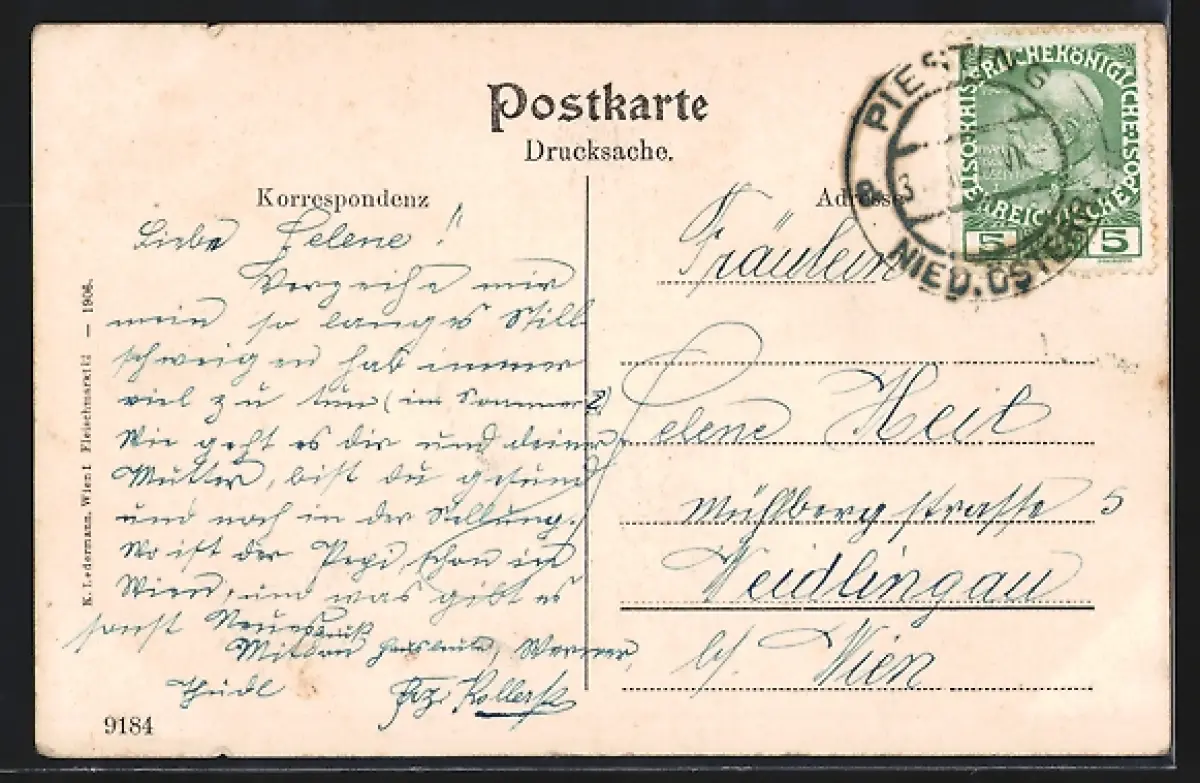 Postkarte
Drucksache.
Korrespondenz
Adresse
Liebe Helene!
Verzeihe mir
mein so langes Still
schweigen hab immer
viel zu tun (im Sommer)
Wie geht es dir und deiner
Mutter, bist du gesund
und noch in der Stellung.
Wo ist der Pepi, schon in
Wien, und was gibt es
sonst Neues
Mit
Frz.
Fräulein
Helene Heil
Mühlbergstrasse 5
Weidlingau
b/ Wien
PIESTING
NIED. ÖSTERR.
KAISERLICHEKÖNIGLICHE POST
ÖSTERREICHISCHE
5 5
K. Ledermann, Wien I. Fleischmarkt 12 — 1906.
9184